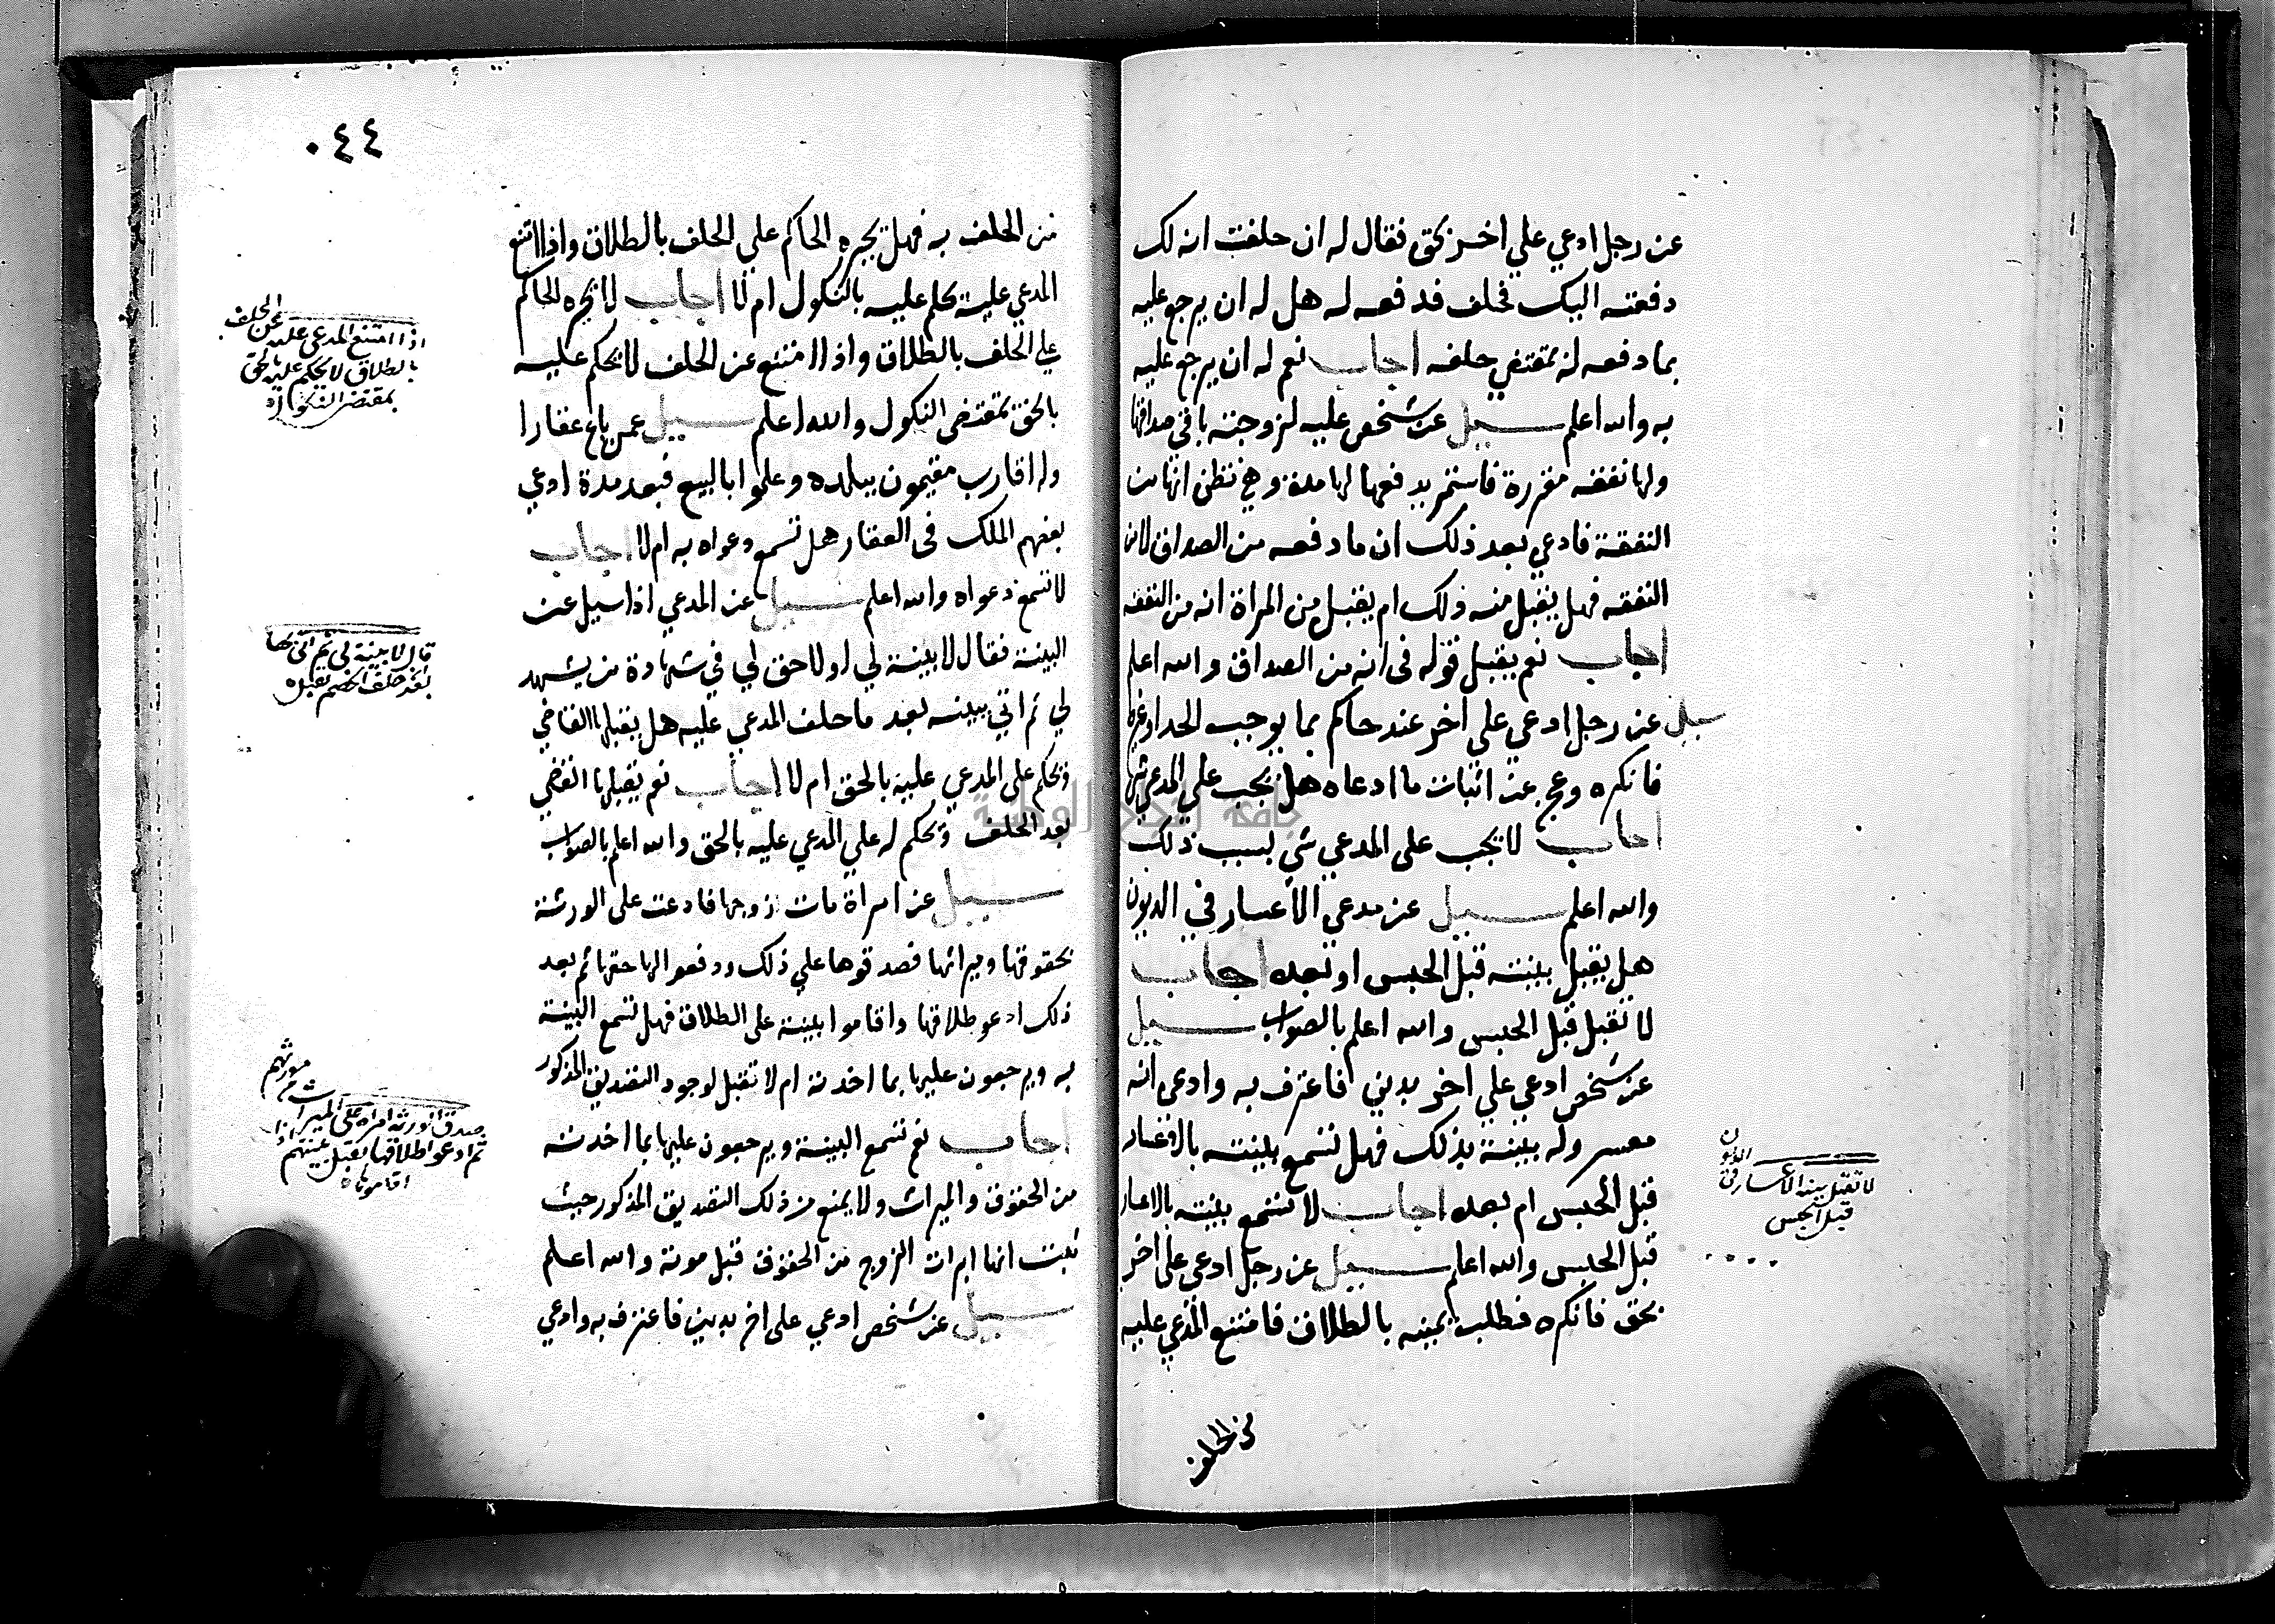 عن رجل ادعي علي اخر بحق فقال له ان حلفت انه لك
دفعته اليك فحلف فدفعه له هل له ان يرجع عليه
بما دفعه له بمقتضي حلفه اجاب نعم له ان يرجع عليه
به والله اعلم سيل عن شخص عليه لزوجته باقي صداقها
ولها نفقه مقررة فاستمر يدفعها لها مدة وهي تظن انها من
النفقة فادعي بعد ذلك ان ما دفعه من الصداق لا من
النفقه فهل يقبل منه ذلك ام يقبل من المراة انه من النفقه
اجاب نعم يقبل قوله فى انه من الصداق والله اعلم
سيل عن رجل ادعي علي اخر عند حاكم بما يوجب الحد او غيره
فانكره وعجز عن اثبات ما ادعاه هل يجب علي المدعي شي
اجاب لا يجب على المدعي شي بسبب ذلك
والله اعلم سيل عن مدعي الاعسار في الديون
هل يقبل بينته قبل الحبس او بعده اجاب
لا تقبل قبل الحبس والله اعلم بالصواب سيل
عن شخص ادعي علي اخر بدين فاعترف به وادعى انه
معسر وله بينة بذلك فهل تسمع بينته بالاعسار
قبل الحبس ام بعده اجاب لا تسمع بينته بالاعسار
قبل الحبس والله اعلم سيل عن رجل ادعي على اخر
بحق فانكره فطلب يمينه بالطلاق فامتنع المدعي عليه
من الحلف
لا تقبل بينة الاعسار في الديون
قبل الحبس
٠٤٤
من الحلف به فهل يجبره الحاكم علي الحلف بالطلاق واذا امتنع
المدعي عليه يحكم عليه بالنكول ام لا اجاب لا يجبره الحاكم
علي الحلف بالطلاق واذا امتنع عن الحلف لا يحكم عليه
بالحق بمقتضى النكول والله اعلم سيل عمن باع عقارا
وله اقارب مقيمون ببلده وعلموا بالبيع فبعد مدة ادعي
بعضهم الملك فى العقار هل تسمع دعواه به ام لا اجاب
لا تسمع دعواه والله اعلم سيل عن المدعي اذا سيل عن
البينة فقال لا بينة لي او لا حق لي في شهادة من يشهد
لي ثم اتي ببينه بعد ما حلف المدعي عليه هل يقبلها القاضي
ويحكم على المدعي عليه بالحق ام لا اجاب نعم يقبلها القاضي
بعد الحلف ويحكم له علي المدعي عليه بالحق والله اعلم بالصواب
سيل عن امراة مات زوجها فادعت على الورثة
بحقوقها وميراثها فصدقوها علي ذلك ودفعوا لها حقها ثم بعد
ذلك ادعو طلاقها واقاموا بينة على الطلاق فهل تسمع البينة
به ويرجعون عليها بما اخدته ام لا تقبل لوجود التصديق المذكور
اجاب نعم تسمع البينة ويرجعون عليها بما اخدته
من الحقوق والميراث ولا يمنع من ذلك التصديق المذكور حيث
ثبت انها ابرات الزوج من الحقوق قبل موته والله اعلم
سيل عن شخص ادعي على اخر بدين فاعترف به وادعي
اذا امتنع المدعى عليه عن الحلف
بالطلاق لا يحكم عليه بالحق
بمقتضى النكول
قال لا بينة لي ثم اتى بها
بعد حلف الخصم تقبل
صدق الورثة امراة على الميراث من مورثهم
ثم ادعوا طلاقها تقبل بينتهم اذا
اقاموها
جامعة النجاح الوطنية